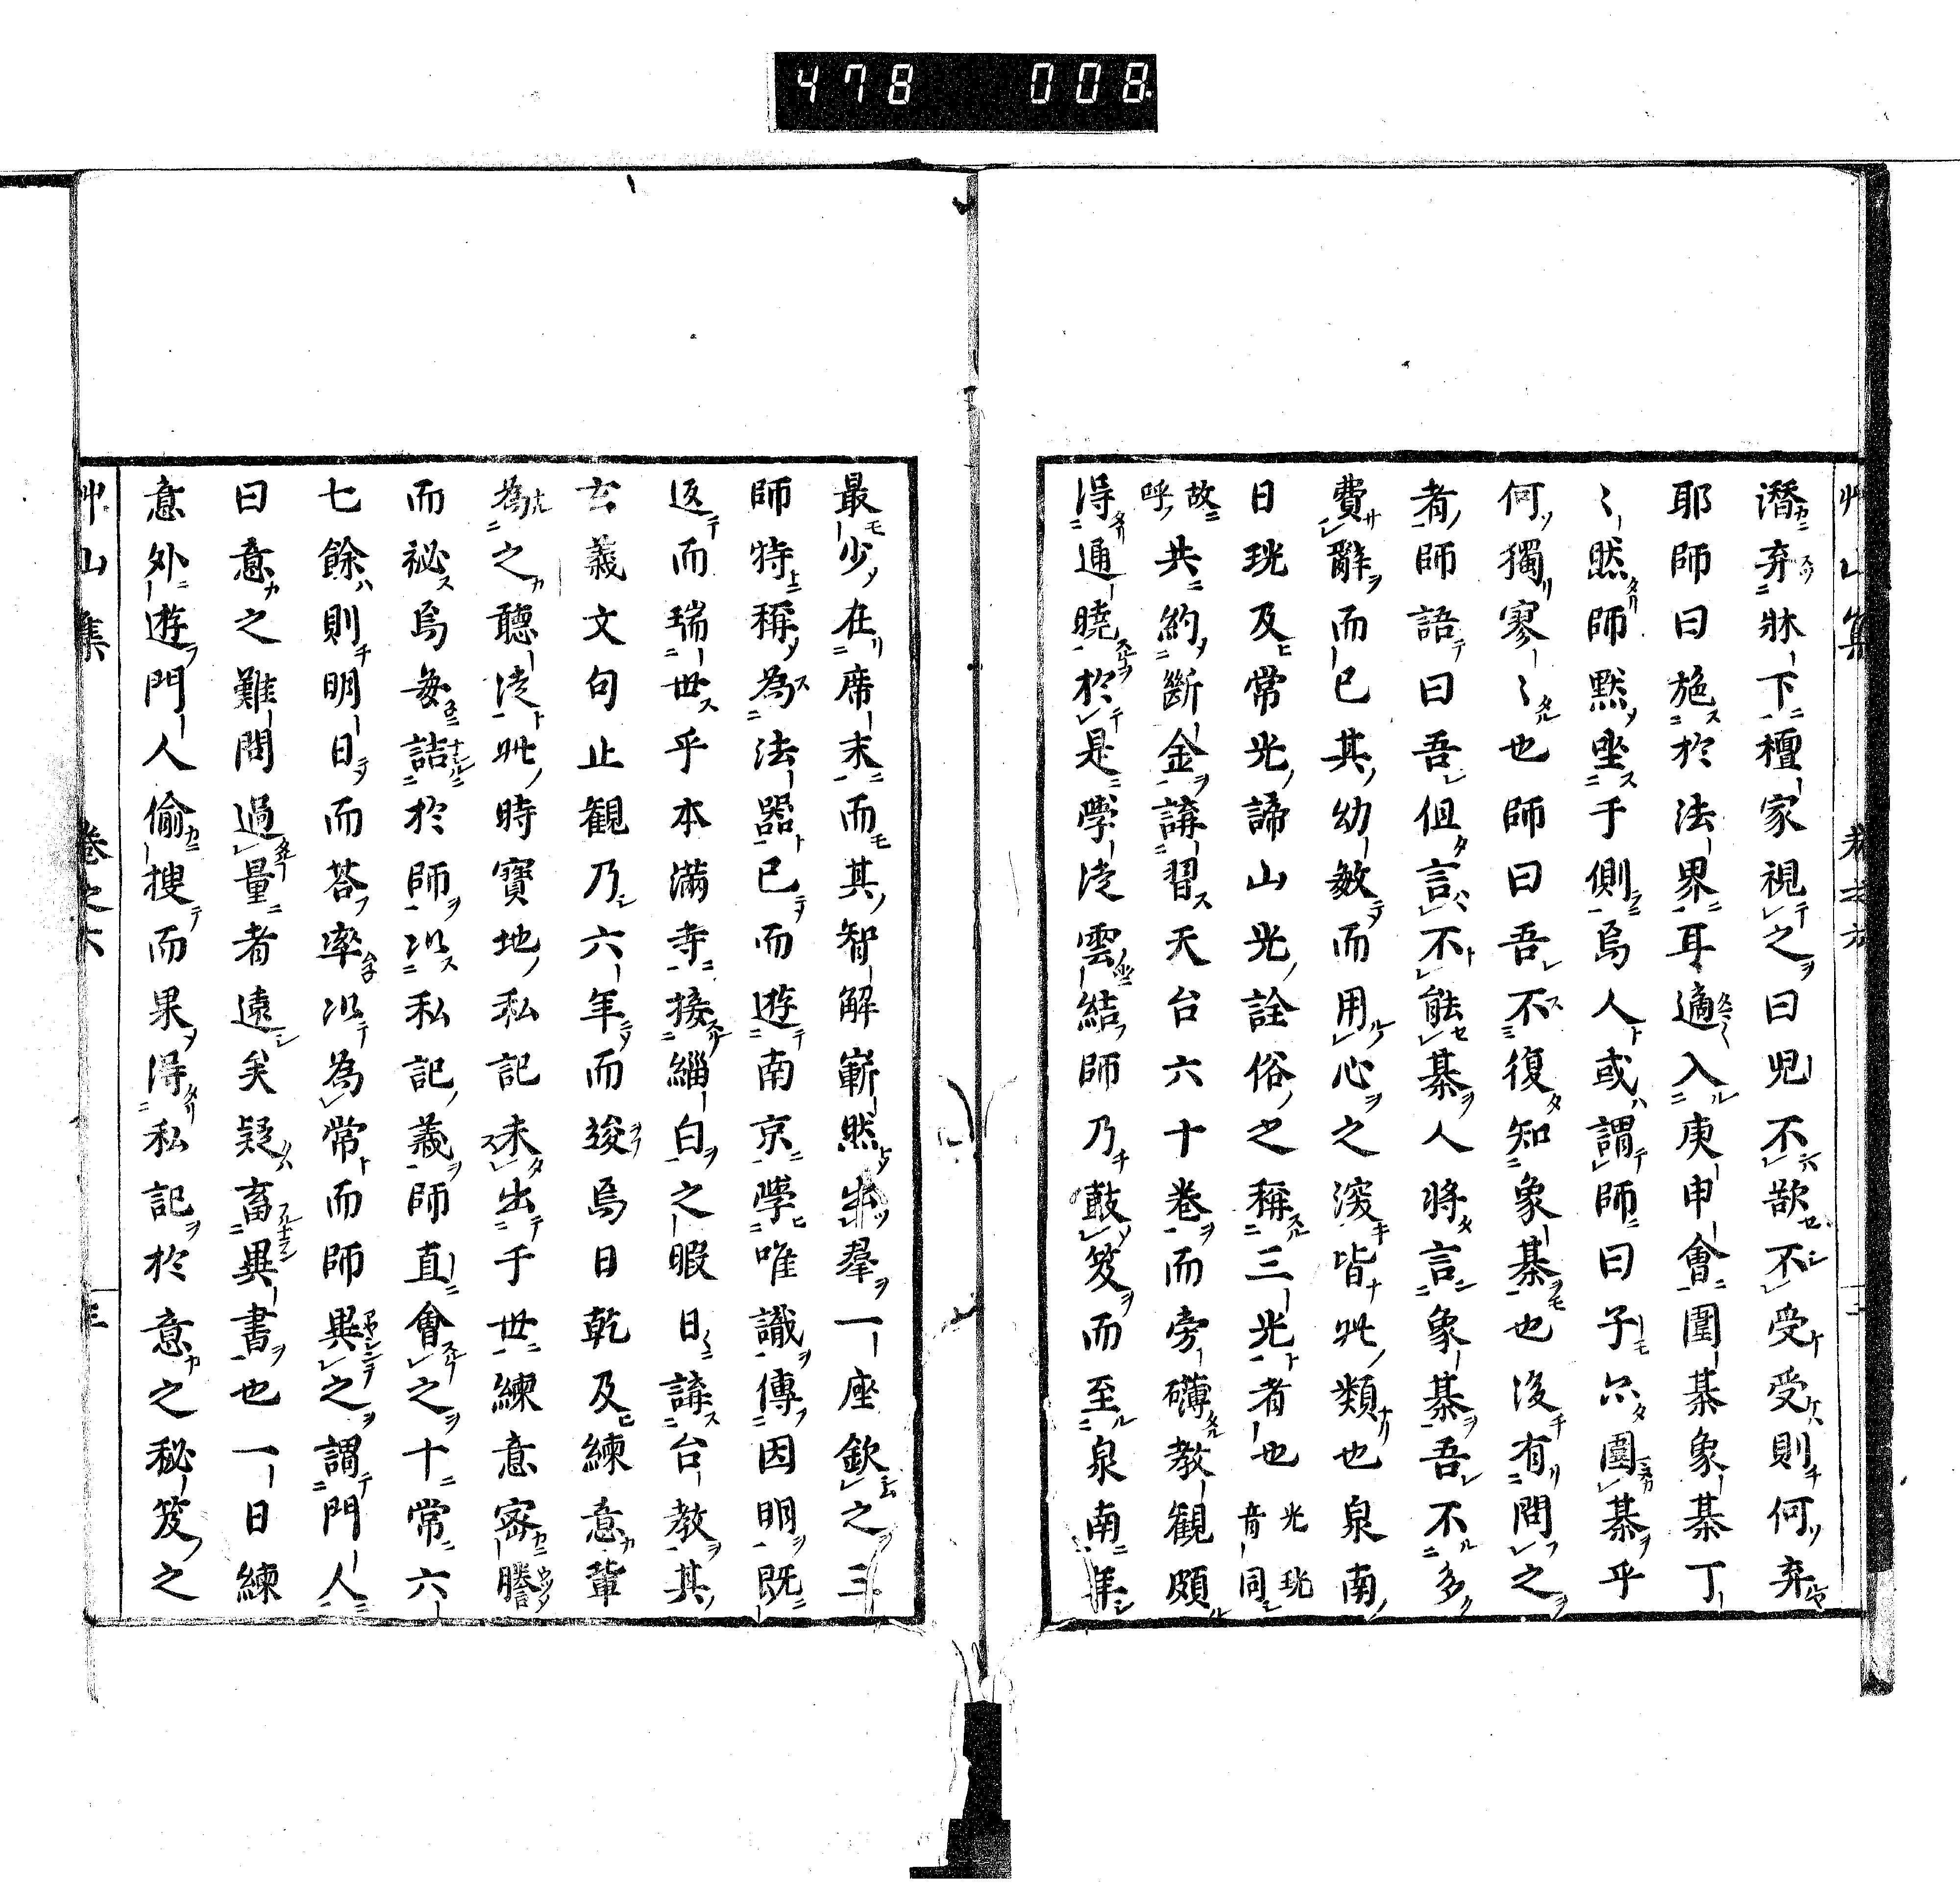 478 008
艸山集 卷之六
潛弃牀下檀家視之曰兒不欲不受受則何弃
耶師曰施於法界耳適入庚申會圍棊象棊丁
〻然師默坐于側焉人或謂師曰子亦圍棊乎
何獨寥〻也師曰吾不復知象棊也後有問之
者師語曰吾但言不能棊人將言象棊吾不多
費辭而已其幼敏而用心之深皆此類也泉南
日珖及常光諦山光詮俗之稱三光者也光珖音同
故呼共約斷金講習天台六十卷而旁礴教觀頗
得通曉於是學徒雲結師乃鼓笈而至泉南年
最少在席末而其智解嶄然出羣一座欽之三
師特稱為法器已而遊南京學唯識傳因明既
返而瑞世乎本滿寺接緇白之暇日講台教其
玄義文句止觀乃六年而竣焉日乾及練意輩
為之聽徒此時寶地私記未出于世練意密謄
而祕焉每詰於師以私記義師直會之十常六
七餘則明日而荅率以為常而師異之謂門人
曰意之難問過量者遠矣疑畜異書也一日練
意外遊門人偷搜而果得私記於意之秘笈之
艸山集 卷之六 三